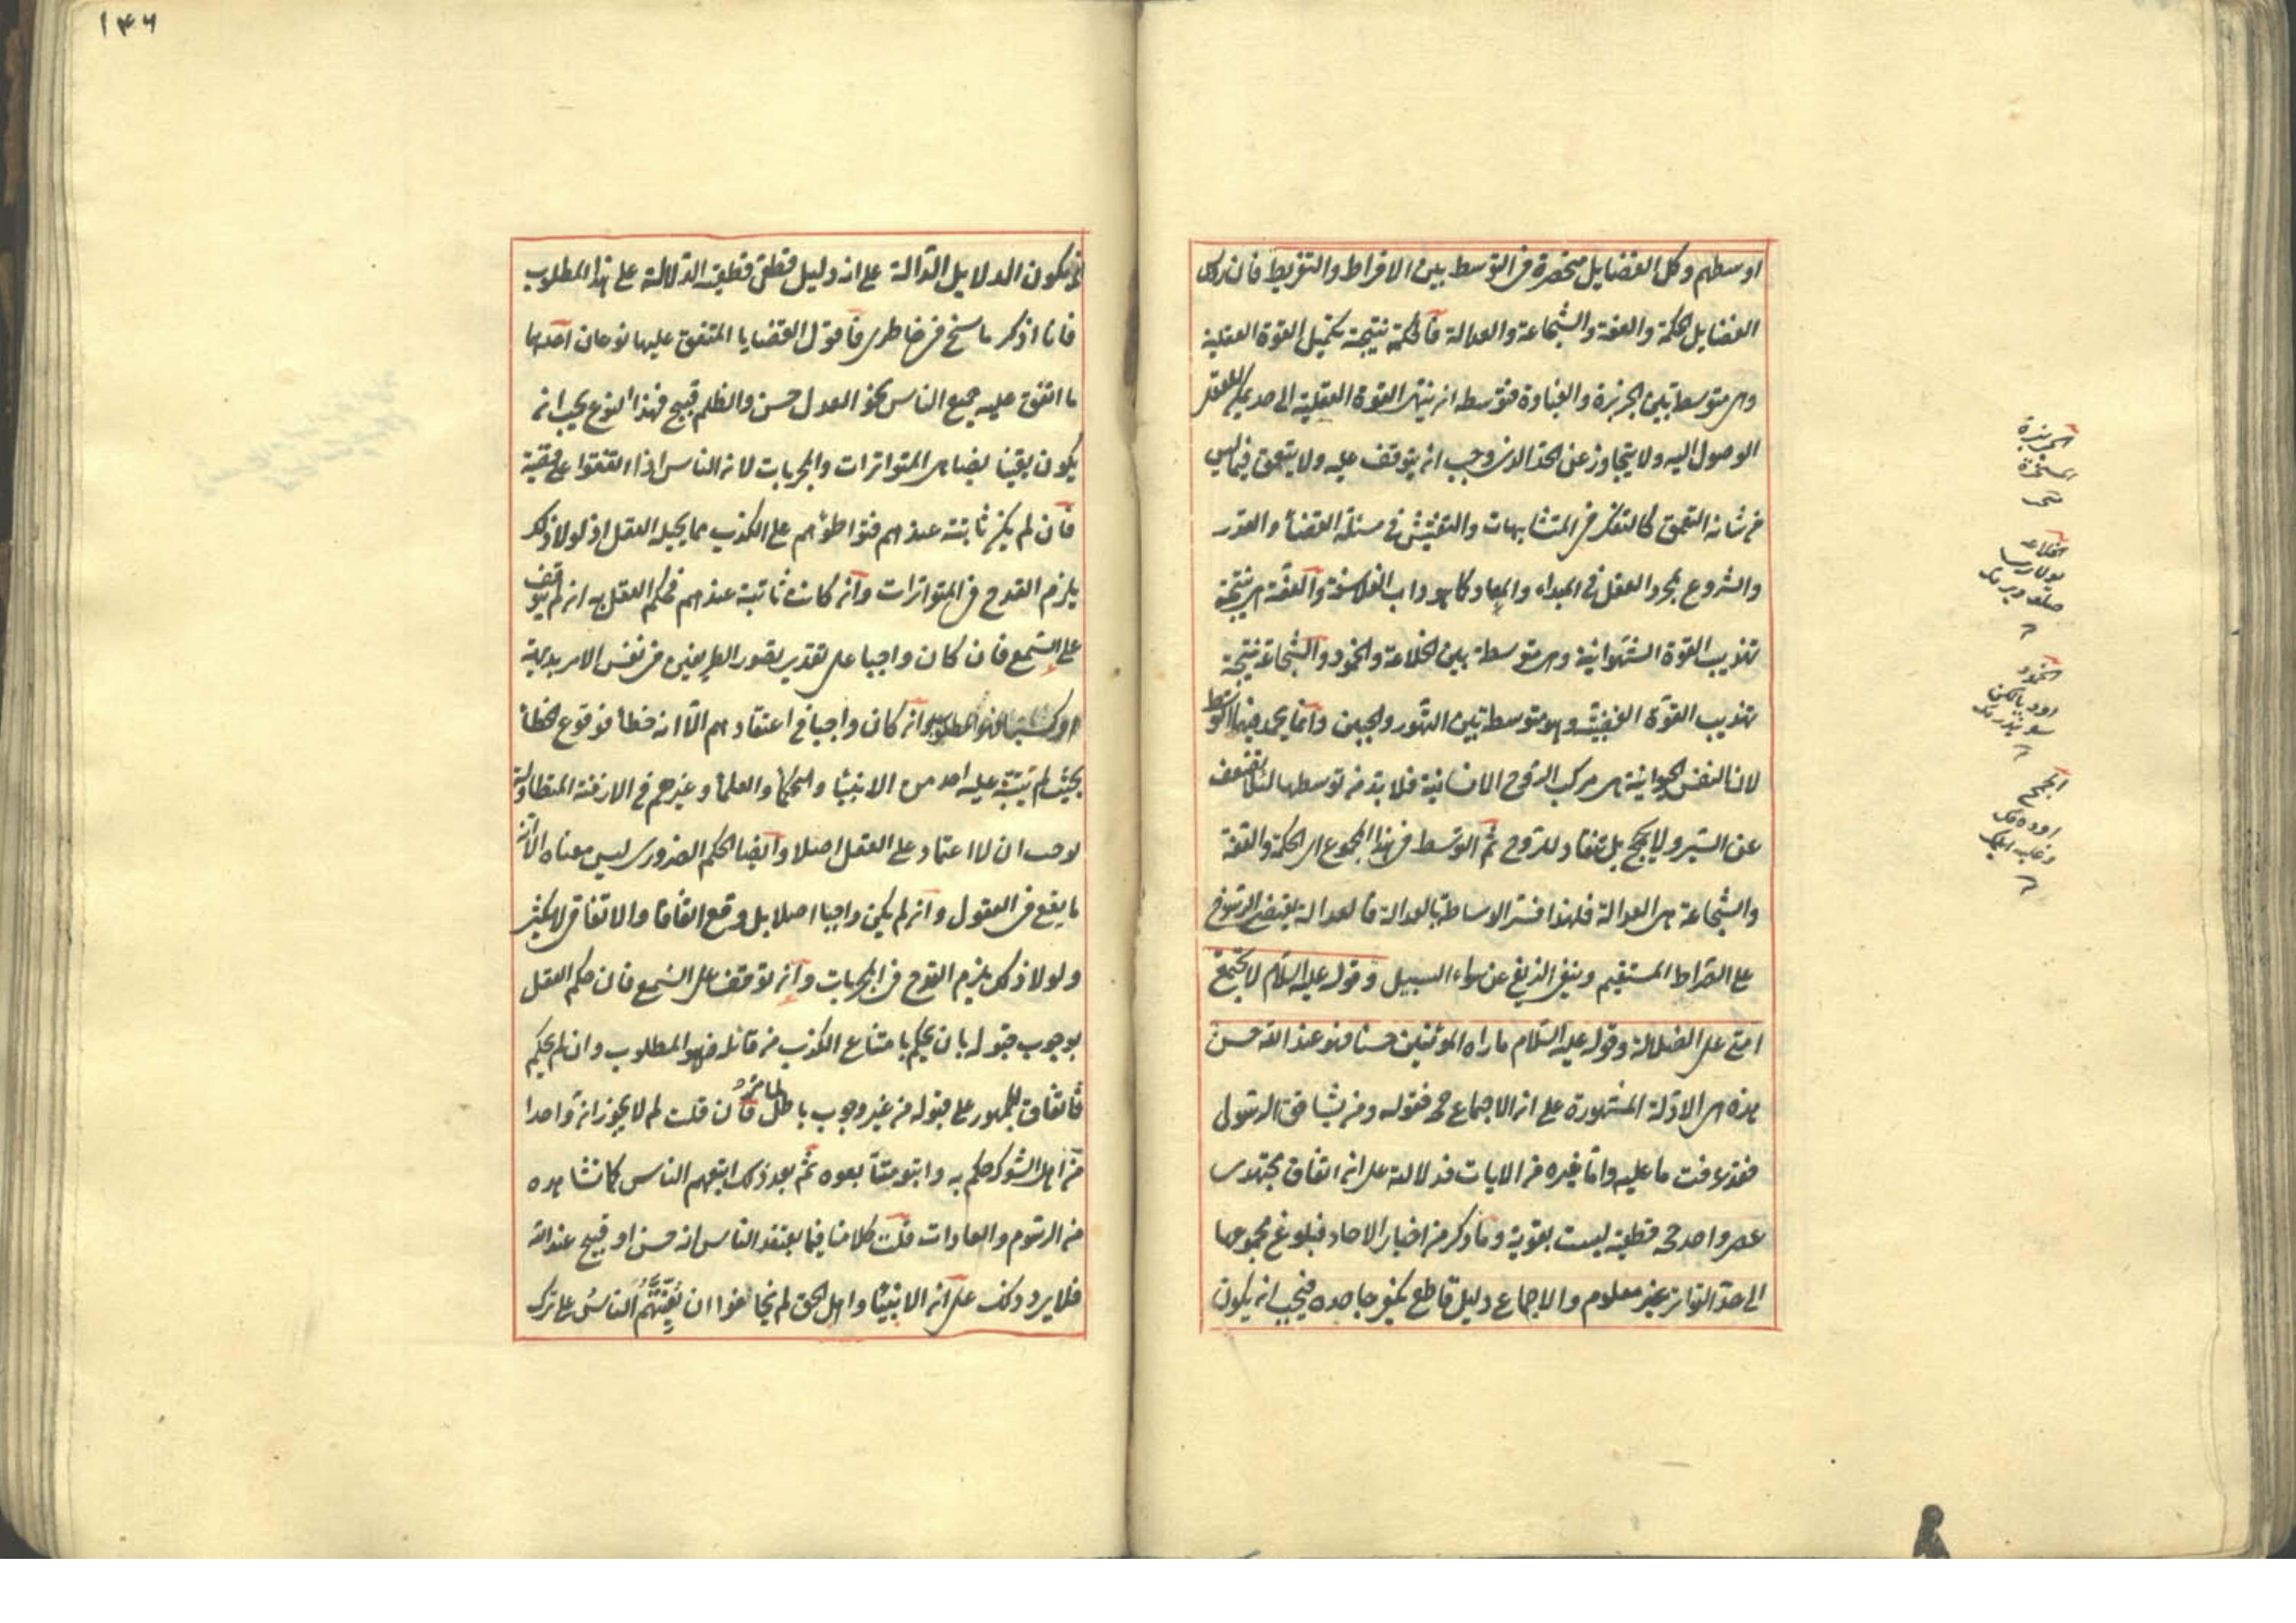 اوسطهم وكل الفضايل منحصرة فى التوسط بين الافراط والتفريط فان رؤس
الفضايل الحكمة والعفة والشجاعة والعدالة فالحكمة نتيجة تكميل القوة العقلية
وهى متوسطة بين الجربزة والغباوة فتوسطه ان ينتهى القوة العقلية الى حد يمكن للعقل
الوصول اليه ولا يتجاوز عن الحد الذى وجب ان يتوقف عليه ولا يتعمق فيما ليس
من شانه التعمق كالتفكر فى المتشابهات والتفتيش فى مسئلة القضأ والقدر
والشروع بمجرد العقل فى المبداء والمعاد كما هو داب الفلاسفة والعفة هى نتيجة
تهذيب القوة الشهوانية وهى متوسطة بين الخلاعة والخمود والشجاعة نتيجة
تهذيب القوة الغضبية وهو متوسطة بين التهور والجبن وانما يحمد فيها التوسط
لان النفس الحيوانية هى مركب الروح الانسانية فلا بد من توسطها لئلا تضعف
عن السير ولا يجمح بل تنقاد للروح ثم التوسط فى هذا المجموع اى الحكمة والعفة
والشجاعة هى العدالة فلهذا فسر الوساطة بالعدالة فالعدالة يقتضى الرسوخ
على الصراط المستقيم وينفى الزيغ عن سواء السبيل وقوله عليه السلام لا يجتمع
امتى على الضلالة وقوله عليه السلام ما راه المؤمنين حسنا فهو عند الله حسن
هذه هى الادلة المشهورة على ان الاجماع حجة فقوله ومن يشاقق الرسول
فقد عرفت ما عليه واما غيره من الايات فدلالة على ان اتفاق مجتهدى
عصر واحد حجة قطعية ليست بقوية وما ذكر من اخبار الاحاد فبلوغ مجموعها
الى حد التواتر غير معلوم والاجماع دليل قاطع يكفر جاحده فيجب ان يكون
الجربزة
الخلاعة
الخمود
الجمح
١٤٦
يكون الدلايل الدالة على انه دليل قطعى قطعية الدلالة على هذا المطلوب
فانا اذكر ما سنح فى خاطرى فاقول القضايا المتفق عليها نوعان احدهما
ما اتفق عليه جميع الناس نحو العدل حسن والظلم قبيح فهذا النوع يجب ان
يكون يقينا يضاهى المتواترات والمجربات لان الناس اذا اتفقوا على قضية
فان لم يكن ثابتة عندهم فتواطؤهم على الكذب مما يحيله العقل اذ لولا ذلك
يلزم القدح فى المتواترات وان كانت ثابتة عندهم فحكم العقل به ان لم يتوقف
على السمع فان كان واجبا على تقدير تصور الطرفين فى نفس الامر بديهية
او كسبيا فهو المطلوب وان كان واجبا فى اعتقادهم الا انه خطأ فوقوع الخطأ
بحيث لم يتنبه عليه احد من الانبيأ والحكمأ والعلمأ وغيرهم فى الازمنة المتطاولة
يوجب ان لا اعتماد على العقل اصلا وايضا الحكم الضرورى ليس معناه الا انه
ما يقع فى العقول وان لم يكن واجبا اصلا بل وقع اتفاقا والاتفاقى لا يكثر
ولولا ذلك يلزم القدح فى المجربات وان توقف على السمع فان حكم العقل
بوجوب قبوله بان يحكم بامتناع الكذب من قائله فهو المطلوب وان لم يحكم
فاتفاق الجمهور على قبوله من غير وجوب باطل لما مر فان قلت لم لا يجوز ان واحدا
من اهل الشوكة حكم به واتبو متابعوه ثم بعد ذلك اتبعهم الناس كما نشاهده
من الرسوم والعادات قلت كلامنا فيما يعتقد الناس انه حسن او قبيح عند الله
فلا يرد ذلك على ان الانبيأ واهل الحق لم يخافوا ان يعيرهم الناس على ترك